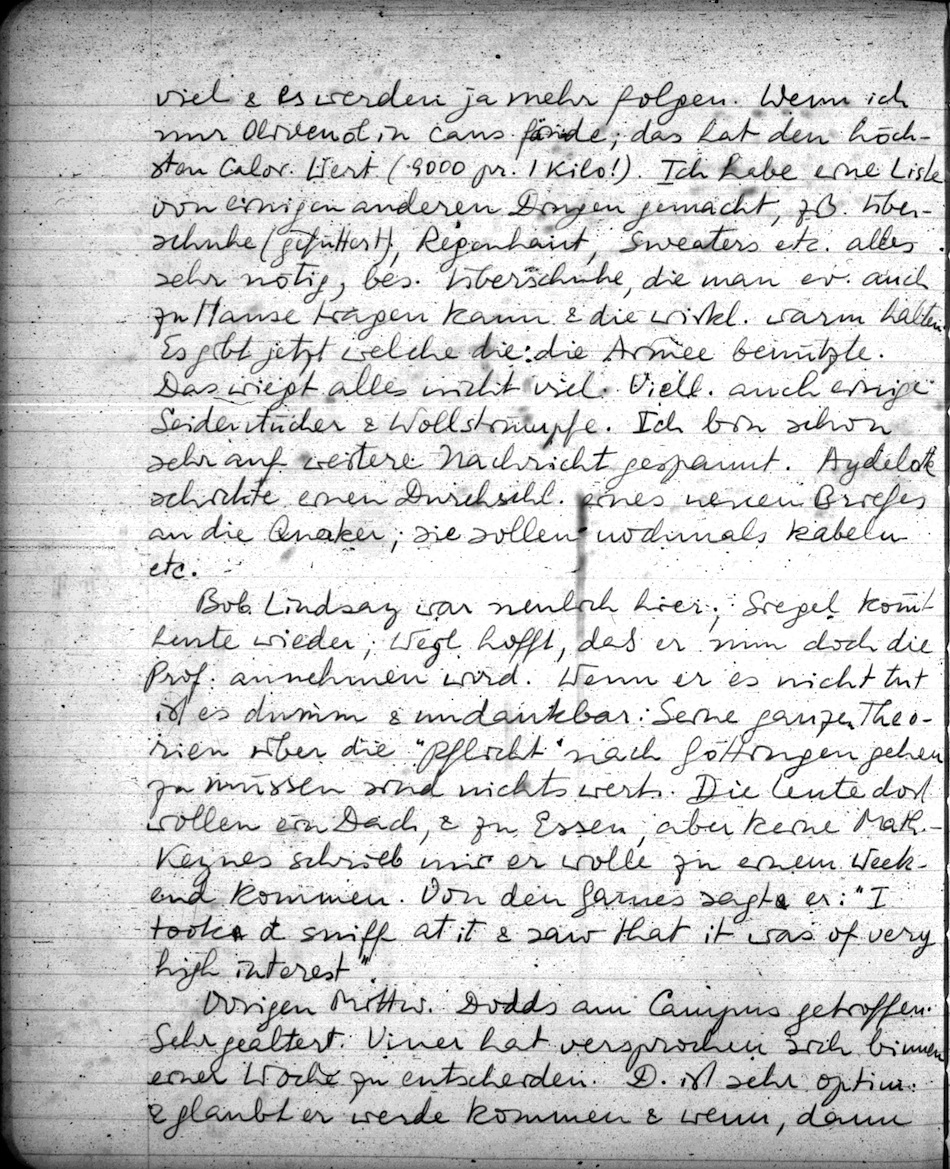 viel & es werden ja mehr folgen. Wenn ich
nur Olivenöl in cans fände; das hat den höch-
sten Calor. Wert (9000 pr. 1 Kilo!). Ich habe eine Liste
von einigen anderen Dingen gemacht, zB. Über-
schuhe (gefüttert), Regenhaut, Sweaters etc. alles
sehr nötig, bes. Überschuhe, die man ev. auch
zu Hause tragen kann & die wirkl. warm halten.
Es gibt jetzt welche die die Armee benützte.
Das wiegt alles nicht viel. Viell. auch einige
Seidentücher & Wollstrümpfe. Ich bin schon
sehr auf weitere Nachricht gespannt. Aydelotte
schickte einen Durchschl. eines neuen Briefes
an die Quaker; sie sollen nochmals kabeln
etc.
Bob Lindsay war neulich hier; Siegel komt
heute wieder; Weyl hofft, daß er nun doch die
Prof. annehmen wird. Wenn er es nicht tut
ist es dumm & undankbar. Seine ganzen Theo-
rien über die "Pflicht" nach Göttingen gehen
zu müssen sind nichts wert. Die Leute dort
wollen ein Dach, & zu Essen, aber keine Math.
Keynes schrieb mir er wolle zu einem Week-
end kommen. Von den Games sagt er: "I
took a sniff at it & saw that it was of very
high interest".
Vorigen Mittw. Dodds am Campus getroffen.
Sehr gealtert. Viner hat versprochen sich binnen
einer Woche zu entscheiden. D. ist sehr optim.
& glaubt er werde kommen & wenn, dann